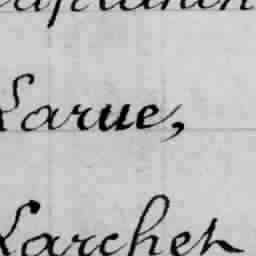 Larue,
Larcher